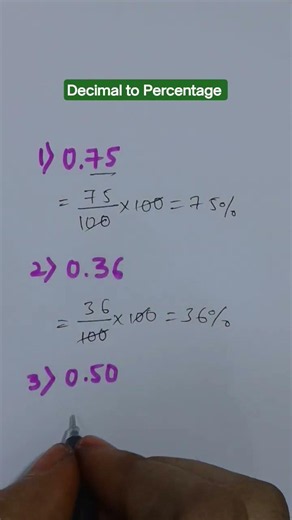 Decimal to Percentage
1) 0.75
= 75/100 × 100 = 75%
2) 0.36
= 36/100 × 100 = 36%
3) 0.50